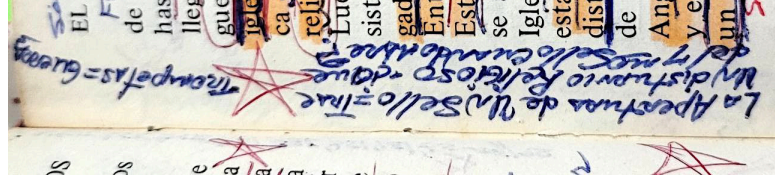 La Apertura de Un Sello = Trae
Un disturvio Religioso - ¿Que
del 7mo Sello cuando Abre?
Trompetas = Guerras
EL
de
has
lleg
gue
igle
ca
reli
Lue
sist
gad
Est
se
Igle
esta
dist
de
An
y e
un